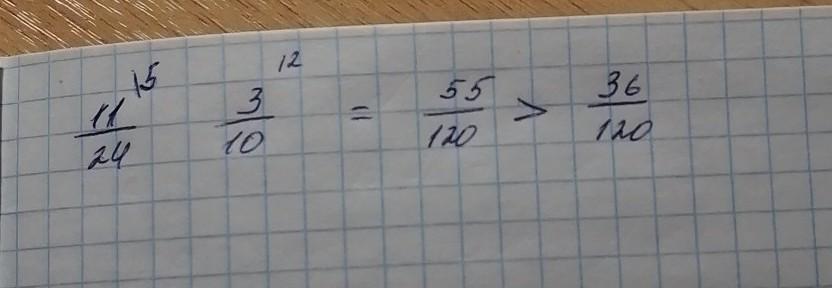 11/24 \5 3/10 \12 = 55/120 > 36/120